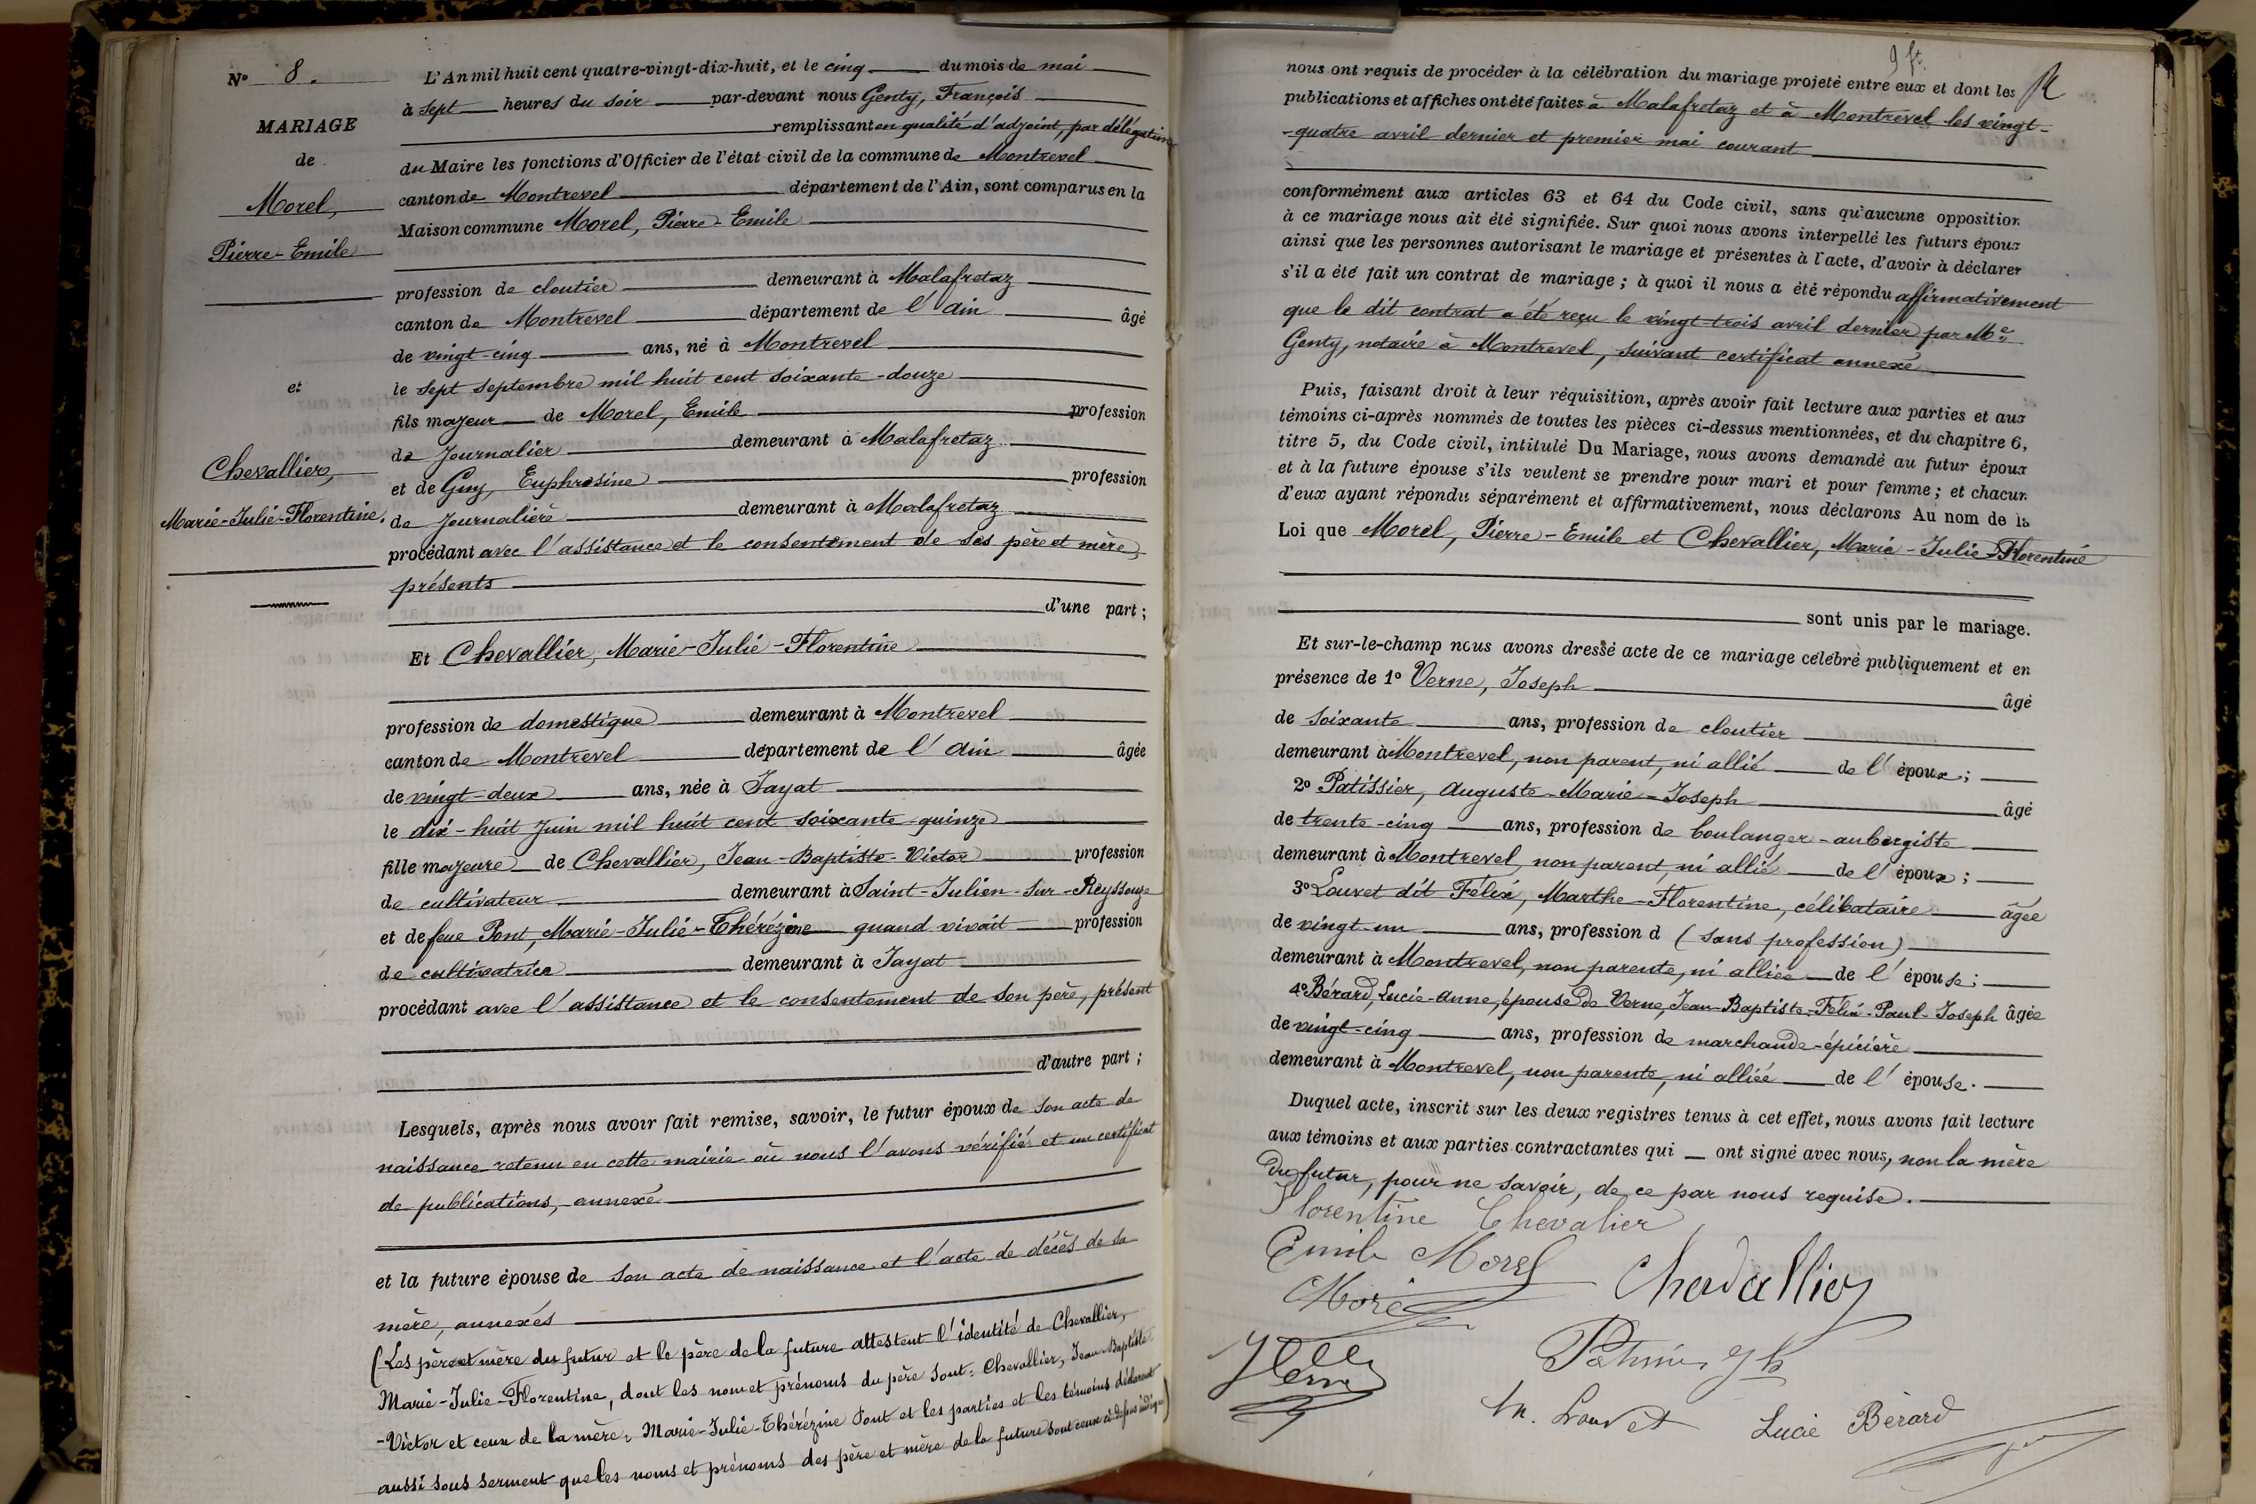 N° 8.
MARIAGE
de
Morel,
Pierre-Emile
et
Chevallier,
Marie-Julie-Florentine.
L'An mil huit cent quatre-vingt-dix-huit, et le cinq du mois de mai
à sept heures du soir par-devant nous Genty, François
remplissant en qualité d'adjoint, par délégation
du Maire les fonctions d'Officier de l'état civil de la commune de Montrevel
canton de Montrevel département de l'Ain, sont comparus en la
Maison commune Morel, Pierre-Emile
profession de cloutier demeurant à Malafretaz
canton de Montrevel département de l'Ain âgé
de vingt-cinq ans, né à Montrevel
le sept septembre mil huit cent soixante-douze
fils majeur de Morel, Emile profession
de Journalier demeurant à Malafretaz
et de Guy, Euphrosine profession
de Journalière demeurant à Malafretaz
procédant avec l'assistance et le consentement de ses père et mère,
présents
d'une part;
Et Chevallier, Marie-Julie-Florentine
profession de domestique demeurant à Montrevel
canton de Montrevel département de l'Ain âgée
de vingt-deux ans, née à Jayat
le dix-huit Juin mil huit cent soixante-quinze
fille majeure de Chevallier, Jean-Baptiste-Victor profession
de cultivateur demeurant à Saint-Julien-sur-Reyssouze
et de feue Pont, Marie-Julie-Thérézine quand vivait profession
de cultivatrice demeurant à Jayat
procédant avec l'assistance et le consentement de son père, présent
d'autre part;
Lesquels, après nous avoir fait remise, savoir, le futur époux de son acte de
naissance retenu en cette mairie où nous l'avons vérifié et un certificat
de publications, annexé
et la future épouse de son acte de naissance et l'acte de décès de sa
mère, annexés
(Les père et mère du futur et le père de la future attestent l'identité de Chevallier,
Marie-Julie-Florentine, dont les nom et prénoms du père sont: Chevallier, Jean-Baptiste
-Victor et ceux de la mère: Marie-Julie-Thérézine Pont et les parties et les témoins déclarent
aussi sous serment que les noms et prénoms des père et mère de la future sont ceux ci-dessus indiqués)
9 f.
nous ont requis de procéder à la célébration du mariage projeté entre eux et dont les
publications et affiches ont été faites à Malafretaz et à Montrevel les vingt-
-quatre avril dernier et premier mai courant
conformément aux articles 63 et 64 du Code civil, sans qu'aucune opposition
à ce mariage nous ait été signifiée. Sur quoi nous avons interpellé les futurs époux
ainsi que les personnes autorisant le mariage et présentes à l'acte, d'avoir à déclarer
s'il a été fait un contrat de mariage; à quoi il nous a été répondu affirmativement
que le dit contrat a été reçu le vingt-trois avril dernier par Me
Genty, notaire à Montrevel, suivant certificat annexé
Puis, faisant droit à leur réquisition, après avoir fait lecture aux parties et aux
témoins ci-après nommés de toutes les pièces ci-dessus mentionnées, et du chapitre 6,
titre 5, du Code civil, intitulé Du Mariage, nous avons demandé au futur époux
et à la future épouse s'ils veulent se prendre pour mari et pour femme; et chacun
d'eux ayant répondu séparément et affirmativement, nous déclarons Au nom de la
Loi que Morel, Pierre-Emile et Chevallier, Marie-Julie-Florentine
sont unis par le mariage.
Et sur-le-champ nous avons dressé acte de ce mariage célébré publiquement et en
présence de 1° Verne, Joseph âgé
de soixante ans, profession de cloutier
demeurant à Montrevel, non parent, ni allié de l'époux;
2° Patissier, Auguste-Marie-Joseph âgé
de trente-cinq ans, profession de boulanger-aubergiste
demeurant à Montrevel, non parent, ni allié de l'époux;
3° Louvet dit Félix, Marthe-Florentine, célibataire âgée
de vingt-un ans, profession d (sans profession)
demeurant à Montrevel, non parente, ni alliée de l'épouse;
4° Bérard, Lucie-Anne, épouse de Verne, Jean-Baptiste-Félix-Paul-Joseph âgée
de vingt-cinq ans, profession de marchande-épicière
demeurant à Montrevel, non parente, ni alliée de l'épouse.
Duquel acte, inscrit sur les deux registres tenus à cet effet, nous avons fait lecture
aux témoins et aux parties contractantes qui ont signé avec nous, non la mère
du futur, pour ne savoir, de ce par nous requise.
Florentine Chevalier
Emile Morel
Morel Chevallier
Verne Patissier
M. Louvet Lucie Bérard